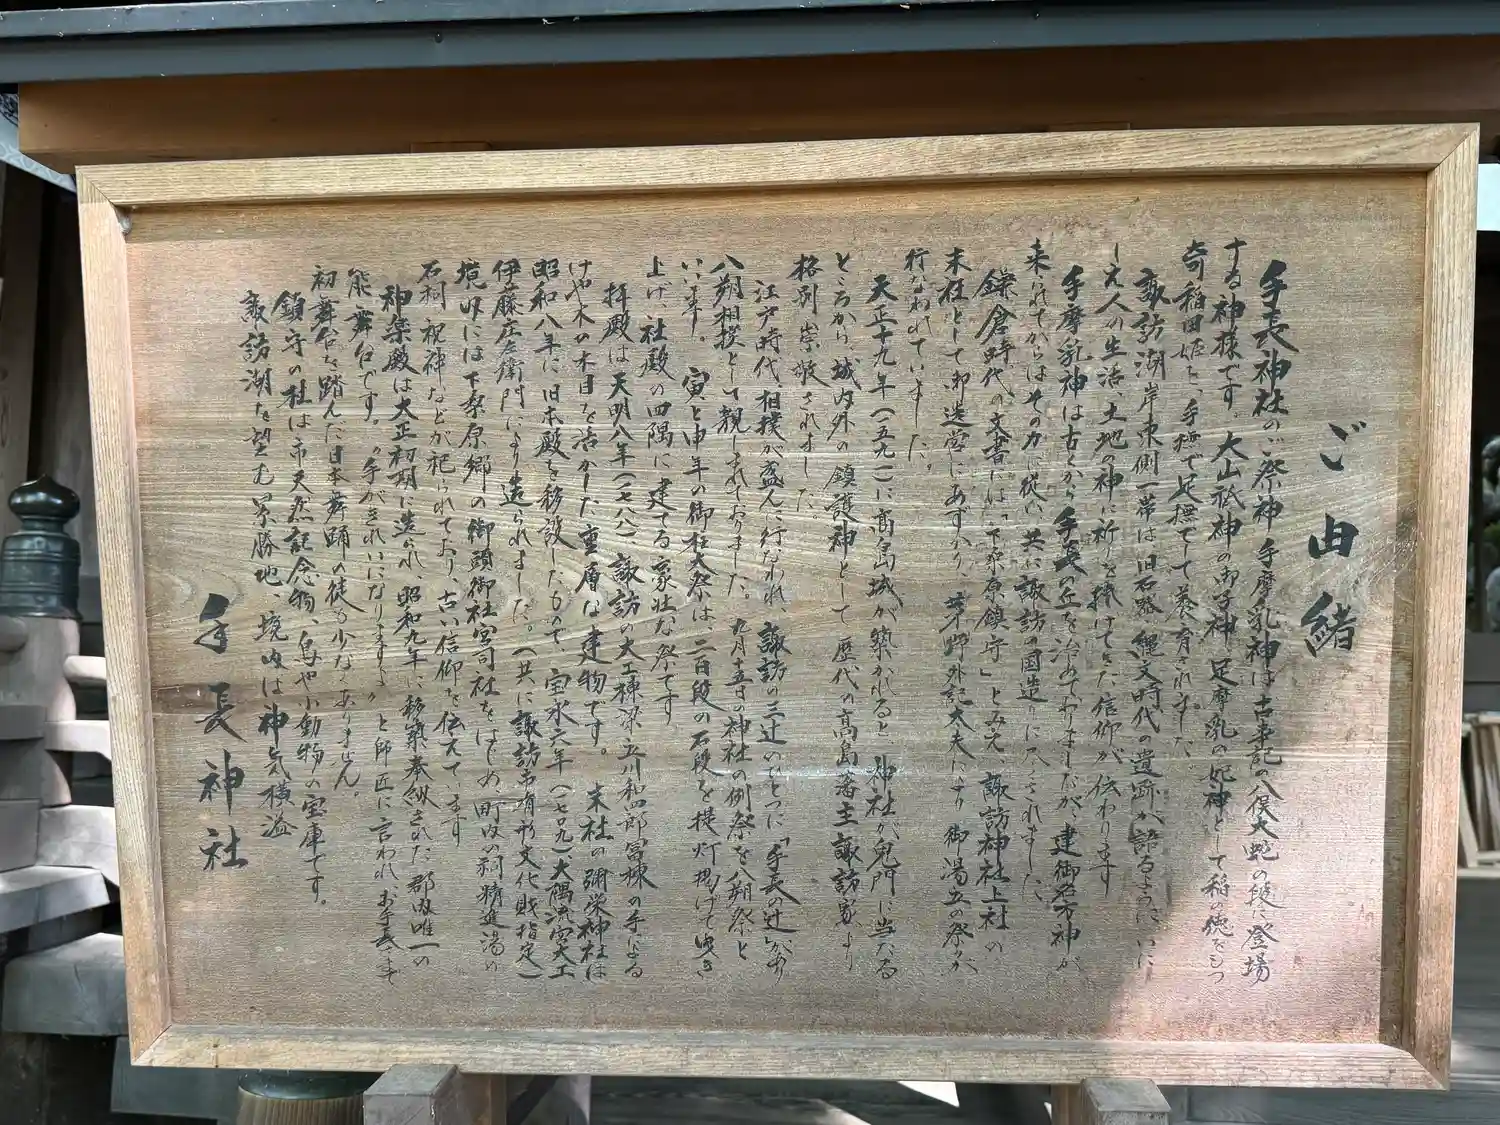 ご由緒
手長神社のご祭神 手摩乳神は古事記の八俣大蛇の段に登場
する神様です。大山祗神の御子神、足摩乳の妃神として稲の徳をもつ
奇稲田姫を、手極で足撫でして養育されました。
諏訪湖岸東側一帯は旧石器、縄文時代の遺跡が語るように、いに
しえ人の生活、土地の神に祈りを捧げてきた信仰が伝わります
手摩乳神は古くから手長の丘を治めておりましたが、建御名方神が
来られてからはその力に従い、共に諏訪の国造りに尽くされました。
鎌倉時代の文書には「下桑原鎮守」とみえ、諏訪神社上社の
末社として御造宮にあずかり、茅野外記大夫により御湯立の祭が
行なわれていました。
天正十九年(一五九一)に高島城が築かれると 神社が鬼門に当たる
ところから、城内外の鎮護神として 歴代の高島藩主諏訪家より
格別崇敬されました。
江戸時代、相撲が盛んに行なわれ、諏訪の三辻のひとつに「手長の辻」があり
八朔相撲として親しまれておりました。九月十五日の神社の例祭を八朔祭と
いいます。寅と申年の御柱大祭は、二百段の石段を提灯掲げて曳き
上げ、社殿の四隅に建てる豪壮な祭です
拝殿は天明八年(一七八八)諏訪の大工棟梁立川和四郎冨棟の手による
けやきの木目を活かした重層な建物です。 末社の彌栄神社は
昭和八年に旧本殿を移設したもので、宝永六年(一七〇九)大隅流宮大工
伊藤庄左衛門により造られました。(共に諏訪市有形文化財指定)
境内には下桑原郷の御頭御社宮司社をはじめ、町内の祠、精進湯の
石祠、祝神などが祀られており、古い信仰を伝えています
神楽殿は大正初期に造られ、昭和九年に移築奉献された郡内唯一の
能舞台です。〝手がきれいになりますよ〟と師匠に言われ、お手長さま
初舞台を踏んだ日本舞踊の徒も少なくありません。
鎮守の杜は市天然記念物、鳥や小動物の宝庫です。
諏訪湖を望む景勝地、境内は神気横溢
手長神社